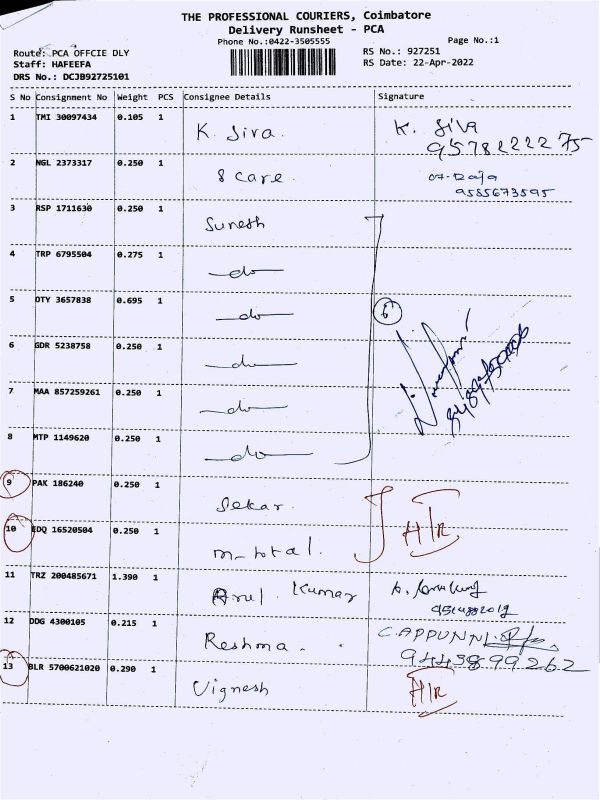 THE PROFESSIONAL COURIERS, Coimbatore
Delivery Runsheet - PCA
Phone No.:0422-3505555 Page No.:1
Route: PCA OFFCIE DLY RS No.: 927251
Staff: HAFEEFA RS Date: 22-Apr-2022
DRS No.: DCJB92725101
S No Consignment No Weight PCS Consignee Details Signature
1 TMI 30097434 0.105 1 K. Siva. K. Siva
9578222275
2 NGL 2373317 0.250 1 8 care.
9585673595
3 RSP 1711630 0.250 1 Suresh
4 TRP 6795504 0.275 1 do
5 OTY 3657838 0.695 1 do 6
6 GDR 5238758 0.250 1 do
7 MAA 857259261 0.250 1 do
8 MTP 1149620 0.250 1 do
9 PAK 186240 0.250 1 Sekar.
10 EDQ 16520504 0.250 1 m-total. HTR
11 TRZ 200485671 1.390 1 Arul. Kumar
12 DDG 4300105 0.215 1 Reshma. C. APPUNNI
9445899262
13 BLR 5700621020 0.290 1 Vignesh HTR